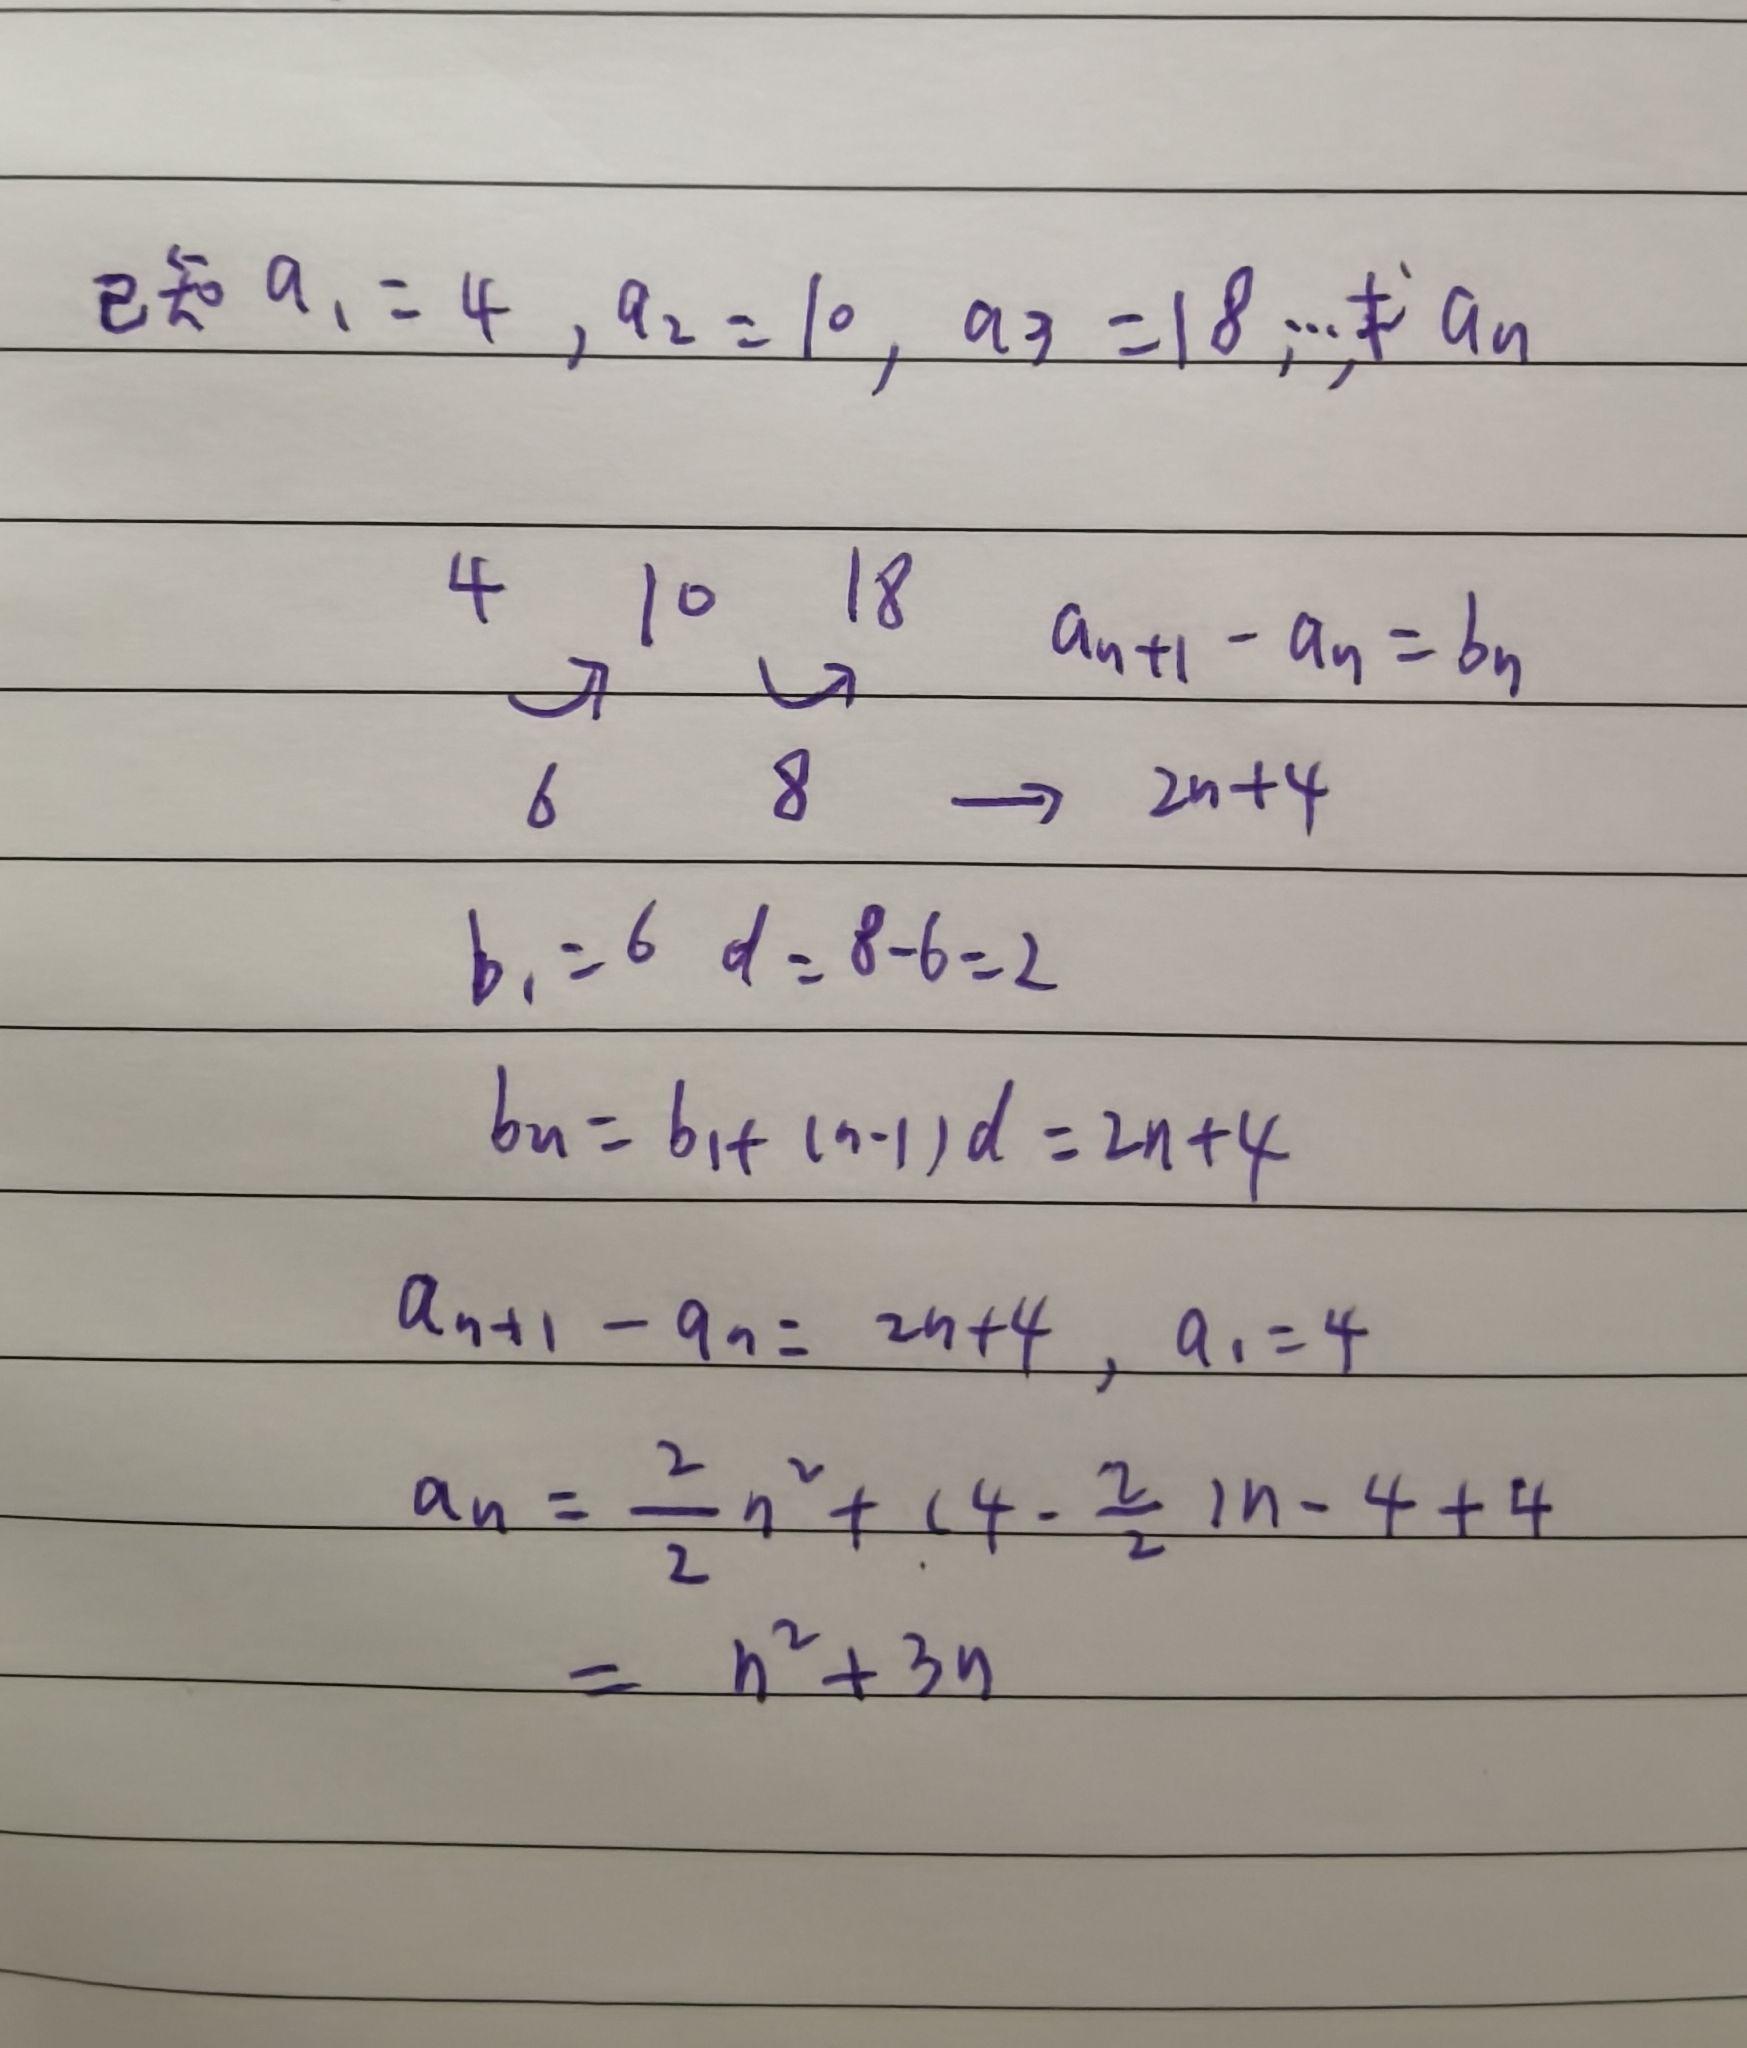 已知 a₁ = 4 , a₂ = 10, a₃ = 18, …, 求 aₙ
4 10 18 aₙ₊₁ - aₙ = bₙ
6 8 → 2n+4
b₁ = 6 d = 8-6 = 2
bₙ = b₁ + (n-1)d = 2n+4
aₙ₊₁ - aₙ = 2n+4 , a₁ = 4
aₙ = 2/2 n² + (4 - 2/2)n - 4 + 4
= n² + 3n